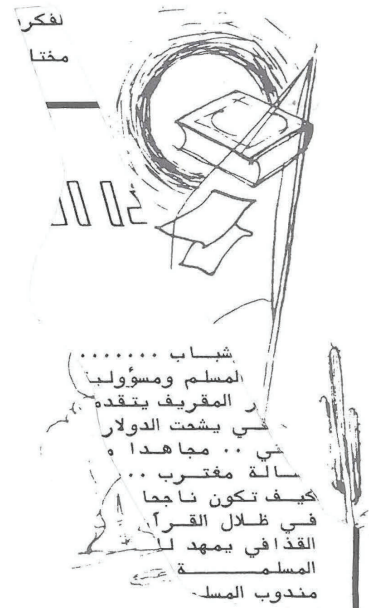 لفكر
مختا
شباب .......
لمسلم ومسؤوليـ
ر المقريف يتقدم
في يشحت الدولار
ني .. مجاهدا م
سالة مغترب ..
كيف تكون ناجحا
في ظلال القرآ
القذافي يمهد لل
المسلمة
مندوب المسلـ